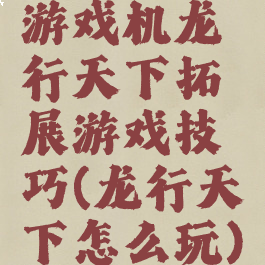 游戏机龙
行天下拓
展游戏技
巧(龙行天
下怎么玩)